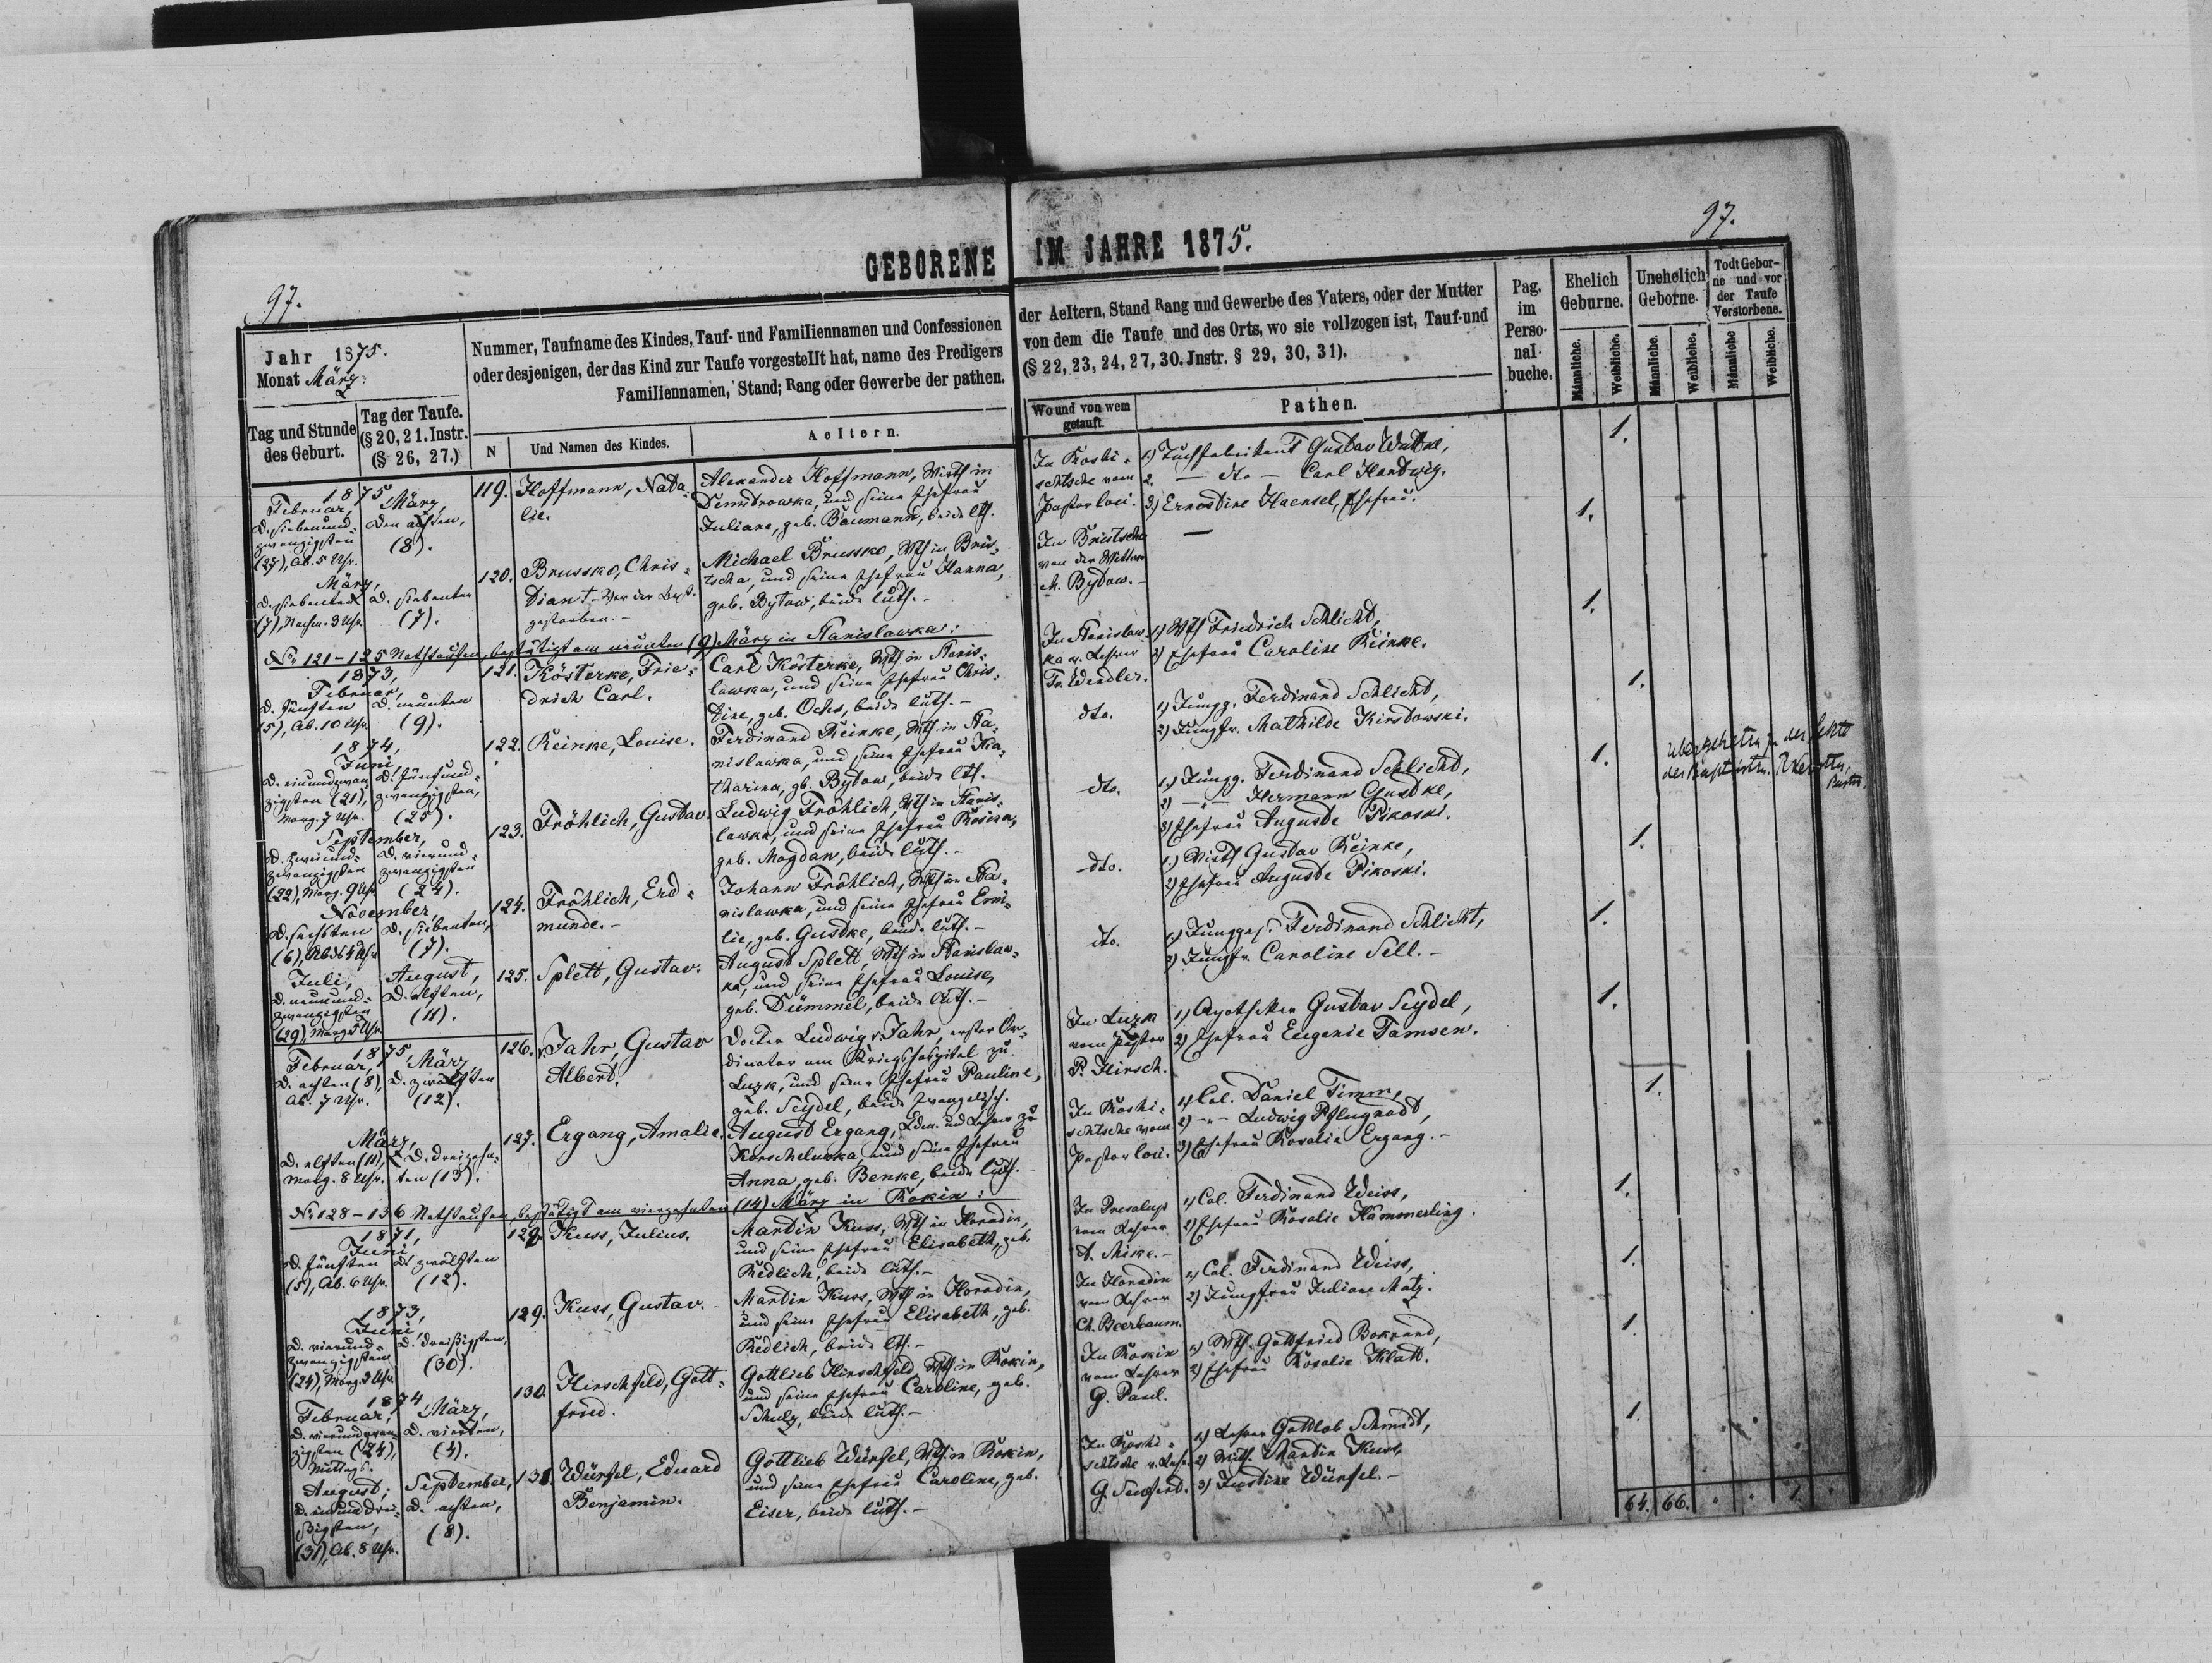 97.
GEBORENE
Jahr 1875.
Monat März.
Nummer, Taufname des Kindes, Tauf- und Familiennamen und Confessionen
oder desjenigen, der das Kind zur Taufe vorgestellt hat, name des Predigers
Familiennamen, Stand; Rang oder Gewerbe der pathen.
Tag und Stunde
des Geburt.
Tag der Taufe.
(§ 20, 21. Instr.
(§ 26, 27.)
N
Und Namen des Kindes.
Aeltern.
1875,
Februar,
D. siebenund-
zwanzigsten
(27), Ab. 5 Uhr.
März,
Den achten,
(8).
119.
Hoffmann, Nata-
lie.
Alexander Hoffmann, Wirth in
und seine Ehefrau
Juliane, geb. Baumann, beide luth.
März,
D. siebenten
(7), Nachm. 3 Uhr.
D. siebenten
(7).
120.
Brussko, Chris-
tian
gestorben.-
Michael Brussko, Wth in Brüs-
tscha, und seine Ehefrau Hanna,
geb. Bytow, beide luth.-
No 121-125 Nothtaufen, bestätigt am neunten (9) März in Stanislawka:
1873,
Februar,
D. fünften
(5), Ab. 10 Uhr.
D. neunten
(9).
121.
Kösterke, Frie-
drich Carl.
Carl Kösterke, Wth in Stanis-
lawka, und seine Ehefrau Chris-
tine, geb. Ochs, beide luth.-
1874,
Juni,
D. einundzwan-
zigsten (21),
Morg. 7 Uhr.
D. fünfund-
zwanzigsten,
(25).
122.
Reinke, Louise.
Ferdinand Reinke, Wth in Sta-
nislawka, und seine Ehefrau Ka-
tharina, gb. Bytow, beide lth.
September,
D. zweiund-
zwanzigsten
(22), Morg. 9 Uhr
D. vierund-
zwanzigsten
(24).
123.
Fröhlich, Gustav.
Ludwig Fröhlich, Wth in Stanis-
lawka, und seine Ehefrau Rosina,
geb. Mogdan, beide luth.-
November,
D. sechsten
D. siebenten,
(7).
124.
Fröhlich, Erd-
munde.-
Johann Fröhlich, Wth in Sta-
nislawka, und seine Ehefrau Emi-
lie, geb. Gustke, beide luth.-
Juli,
D. neunund-
zwanzigsten
(29), Morg. 5 Uhr.
August,
D. elften,
(11).
125.
Splett, Gustav.
August Splett, Wth in Stanislaw-
ka, und seine Ehefrau Louise,
geb. Dümmel, beide luth.-
1875,
Februar,
D. achten (8),
Ab. 7 Uhr.
März,
D. zwölften
(12).
126.
v. Jahr, Gustav
Albert.
Docter Ludwig v. Jahr, erster Or-
dinator am Kriegshospital zu
Luzk, und seine Ehefrau Pauline,
geb. Seydel, beide evangelisch.
März,
D. elften (11),
Morg. 8 Uhr.
D. dreizehn-
ten (13).
127.
Ergang, Amalie.
August Ergang, und Lehrer zu
und seine Ehefrau
Anna, geb. Benke, beide luth.
No 128-136 Nothtaufen, bestätigt am vierzehnten (14) März in Rokin:
1871,
Juni,
D. fünften
(5), Ab. 6 Uhr.
D. zwölften
(12).
128.
Kuss, Julius.
Martin Kuss, Wth in Horodin,
und seine Ehefrau Elisabeth, geb.
Redlich, beide luth.-
1873,
Juni,
D. vierund-
zwanzigsten
(24), Morg. 3 Uhr.
D. dreißigsten,
(30).
129.
Kuss, Gustav.-
Martin Kuss, Wth in Horodin,
und seine Ehefrau Elisabeth, geb.
Redlich, beide lth.-
1874,
Februar,
D. vierundzwan-
zigsten (24),
Mittags.
März,
D. vierten,
(4).
130.
Hirschfeld, Gott-
fried.
Gottlieb Hirschfeld, Wth in Rokin,
und seine Ehefrau Caroline, geb.
Schulz, beide luth.-
August,
D. einunddrei-
ßigsten,
(31), Ab. 8 Uhr.
September,
D. achten,
(8).
131.
Würfel, Eduard
Benjamin.
Gottlieb Würfel, Wth in Rokin,
und seine Ehefrau Caroline, geb.
Eiser, beide luth.-
97.
IM JAHRE 1875.
der Aeltern, Stand Rang und Gewerbe des Vaters, oder der Mutter
von dem die Taufe und des Orts, wo sie vollzogen ist, Tauf-und
(§ 22, 23, 24, 27, 30. Jnstr. § 29, 30, 31).
Wo und von wem
getauft.
Pathen.
Pag.
im
Perso-
nal-
buche.
Ehelich
Geburne.
Unehelich
Geborne.
Todt Gebor-
ne und vor
der Taufe
Verstorbene.
Männliche.
Weibliche.
Männliche.
Weibliche.
Männliche
Weibliche.
In Roshi-
schtsche vom
Pastor loci.
1.) Tuchfabrikant Gustav Wutke,
2. - dto - Carl Hartwig.
3) Ernestine Haensel, Ehefrau.
1.
In Brütscha
von der
A. Bytow.-
-
1.
In Stanislaw-
ka v. Lehrer
Tr. Wendler.
1) Wth Friedrich Schlicht,
2) Ehefrau Caroline Reinke.
1.
dto.
1) Jungg. Ferdinand Schlicht,
2) Jungfr. Mathilde Kirstowski.
1.
dto.
1.) Jungg. Ferdinand Schlicht,
2) -"- Hermann Gustke,
3) Ehefrau Auguste Pikoski.
1.
übergetreten zu der Sekte
der Baptisten.
dto.
1.) Wirth Gustav Reinke,
2) Ehefrau Auguste Pikoski.
1.
dto.
1) Jungges. Ferdinand Schlicht,
2) Jungfr. Caroline Sell.-
1.
In Luzk
vom Pastor
P. Hirsch.
1) Apotheker Gustav Seydel,
2) Ehefrau Eugenie Tamsen.
1.
In Roshi-
schtsche vom
Pastor loci.
1) Col. Daniel Timm,
2) -"- Ludwig Pflugradt,
3) Ehefrau Rosalie Ergang.-
1.
In Presalup
vom Lehrer
A. Mike.-
1) Col. Ferdinand Weiss,
2) Ehefrau Rosalie Hämmerling.
1.
In Horodin
vom Lehrer
Ch. Beerbaum.
1) Col. Ferdinand Weiss,
2) Jungfrau Juliane Matz.
1.
In Rokin
vom Lehrer
G. Paul.
1) Wth. Gottfried Bokrand,
2) Ehefrau Rosalie Klatt.
1.
In Roshi-
schtsche v. Lehr.
1) Lehrer Gottlob Schmidt,
2) Wth. Martin Kuss,
3) Justine Würfel.-
1.
64. 66. " " 1. "